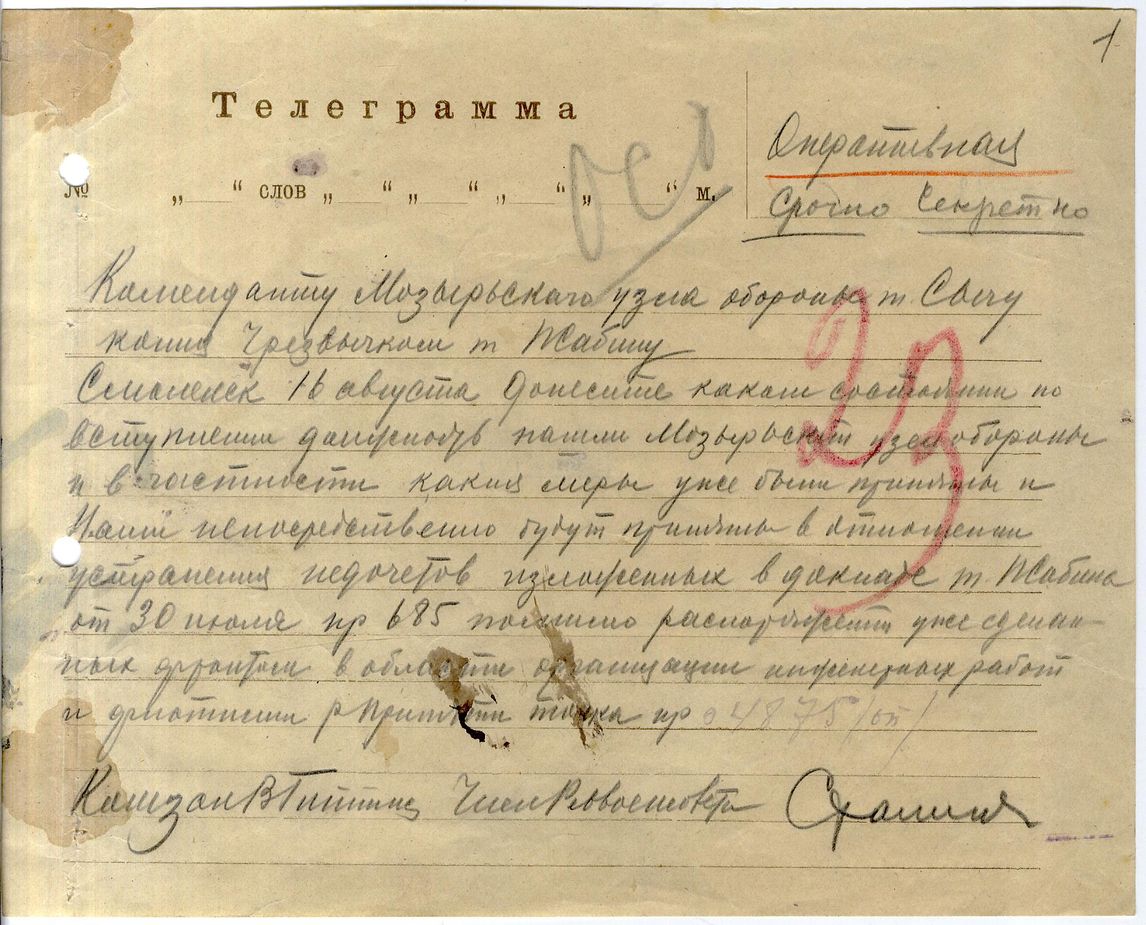 1
Телеграмма
Оперативная
Срочно Секретно
№ „ “ слов „ “ „ “ „ “ „ “ м.
Коменданту Мозырьскаго узла обороны т. Сычу
копия Чрезвычком т Жабину
Смоленск 16 августа Донесите каком состоянии по
вступлении должность нашли Мозырьский узел обороны
и в частности какия меры уже были приняты и
Вами непосредственно будут приняты в отношении
устранения недочетов изложенных в докладе т. Жабина
от 30 июля нр 685 помимо распоряжений уже сделан-
ных фронтом в области организации инженерных работ
и флотилии р Припяти точка нр 04875/оп/
Сталин
23